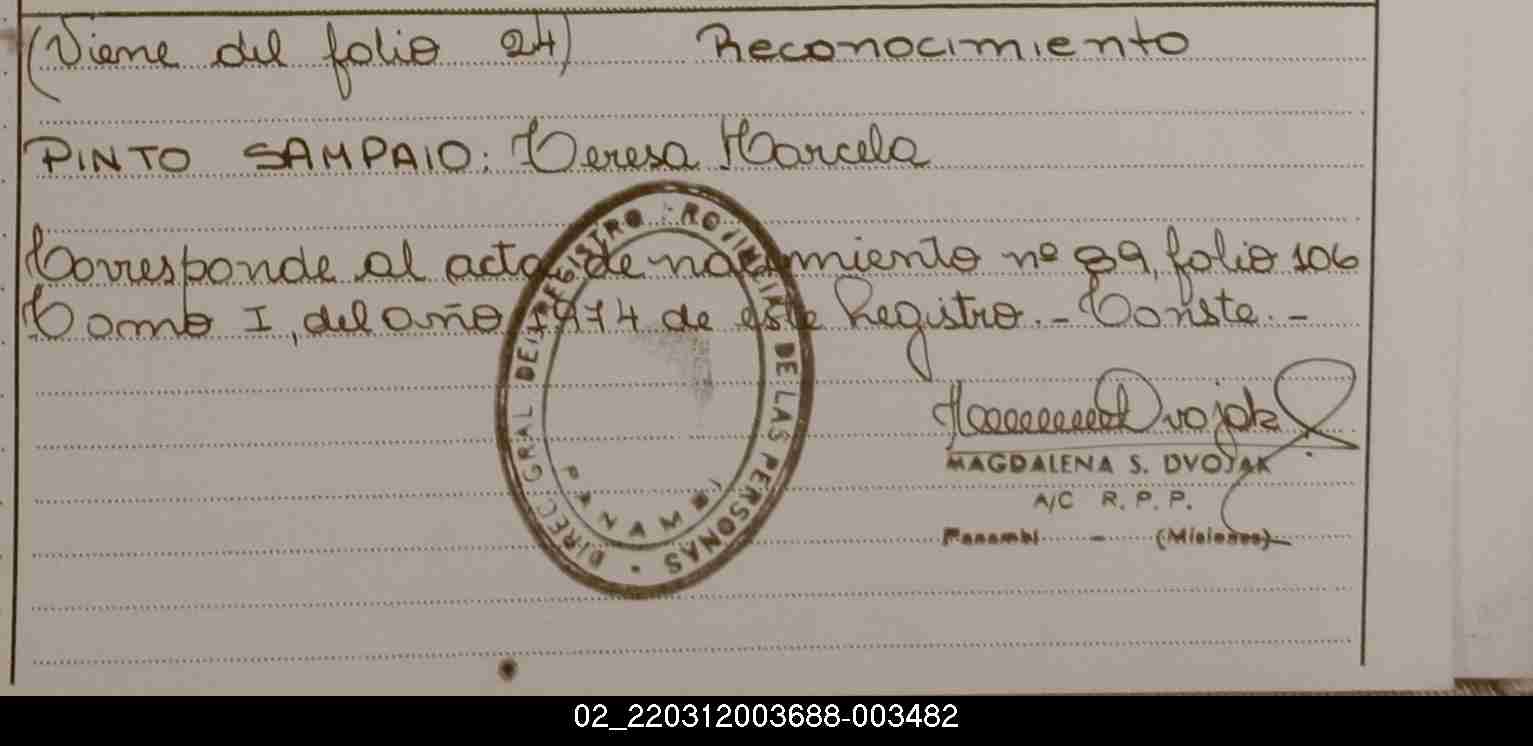 (Viene del folio 24) Reconocimiento
PINTO SAMPAIO: Teresa Marcela
Corresponde al acta de nacimiento nº 89, folio 106
Tomo I, del año 1974 de este Registro.- Conste.-
DIREC. GRAL DEL REGISTRO PROVINCIAL DE LAS PERSONAS
PANAMBI
Dvojak
MAGDALENA S. DVOJAK
A/C R. P. P.
Panambí - (Misiones)
02_220312003688-003482